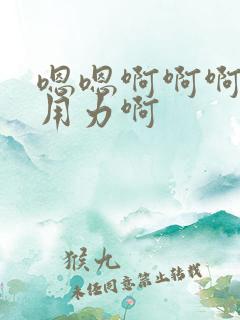 嗯嗯啊啊啊
用力啊
猴九
未经同意禁止转载